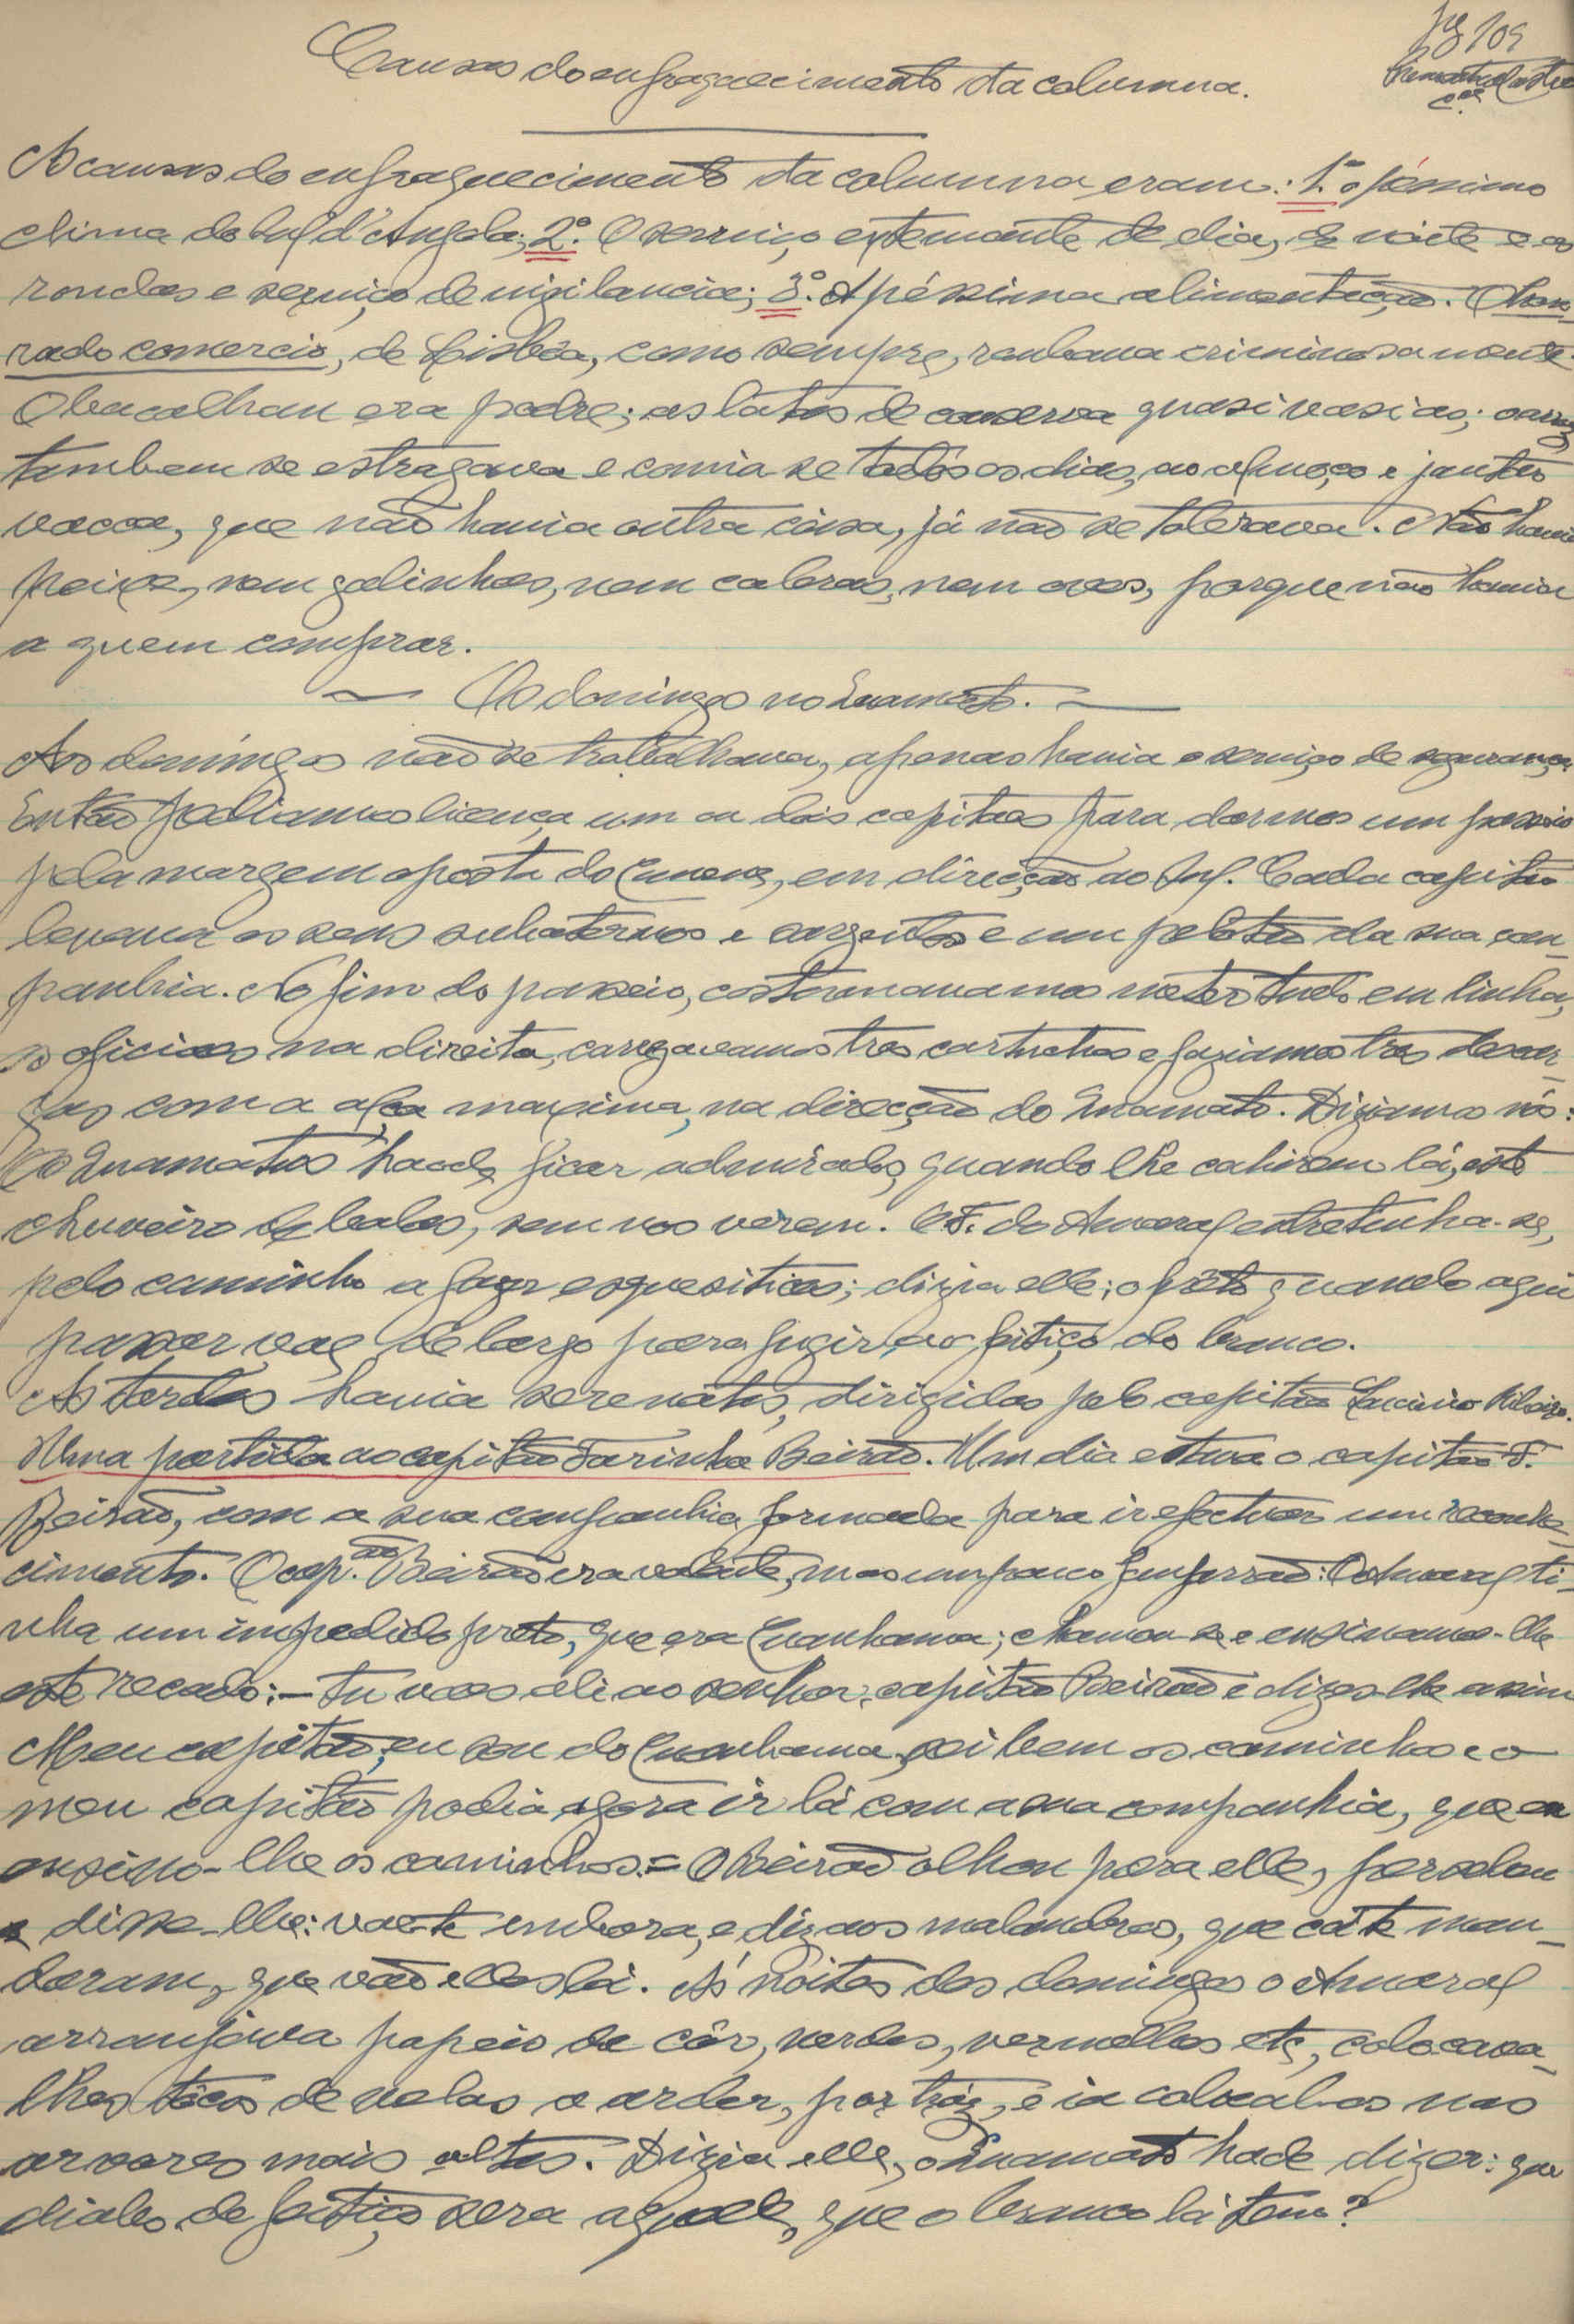 Pg 109
Causas do enfraquecimento da columna.
As causas do enfraquecimento da columna eram: 1.º o péssimo
clima do sul d'Angola; 2.º O serviço extenuante de dia, de noite e as
rondas e serviço de vigilancia; 3.º A péssima alimentação. O hon-
rado comercio, de Lisbôa, como sempre, roubava criminosamente.
O bacalhau era podre; as latas de conserva quasi vasias; o arroz
tambem se estragava e comia se todos os dias, ao almoço e jantar
vacca, que não havia outra côisa, já não se tolerava. Não havia
peixe, nem galinhas, nem cabras, nem ovos, porque não havia
a quem comprar.
~ Os domingos no Cuamato. ~
Aos domingos não se trabalhava, apenas havia o serviço de segurança
Então pediamos licença um ou dois capitães para darmos um passeio
pela margem oposta do Cunene, em direcção ao Sul. Cada capitão
levava os seus subalternos e sargentos e um pelotão da sua com-
panhia. No fim do passeio, costumavamos meter tudo em linha,
os oficiaes na direita, carregavamos tres cartuchos e faziamos tres descar-
gas com a alça maxima, na direcção do Cuamato. Diziamos nós:
Os Cuamatos hãode ficar admirados, quando lhe cahirem lá, este
chuveiro de balas, sem nos verem. O F. do Amaral entretinha-se,
pelo caminho a fazer esquesitices; dizia elle; o prêto quando aqui
passar vae de largo para fugir ao feitiço do branco.
As tardes havia serenatas, dirigidas pelo capitão Ribeiro.
Uma partida ao capitão Farinha Beirão. Um dia estava o capitão F.
Beirão, com a sua companhia formada para ir efectuar um reconhe-
cimento. O cap.ão Beirão era valente, mas um pouco fanfarrão: O Amaral ti-
nha um impedido preto, que era Cuanhama; chamou-se e ensinamos-lhe
este recado:— tu vaes ali ao senhor capitão Beirão e dizes lhe assim
Meu capitão, eu sou do Cuanhama, sei bem os caminhos e o
meu capitão podia agora ir lá com a sua companhia, que eu
ensino-lhe os caminhos.= O Beirão olhou para elle,
e disse-lhe: vae-te embora, e diz aos malandros, que cá te man-
daram, que vão elles lá. Ás nôites dos domingos o Amaral
arranjava papeis de côr, verdes, vermelhos etc, colocava-
lhes tôcos de velas a arder, por traz, e ia colocal-os nas
arvores mais altas. Dizia elle, o Cuamato hade dizer: que
diabo de feitiço sera aquele, que o branco lá tem?